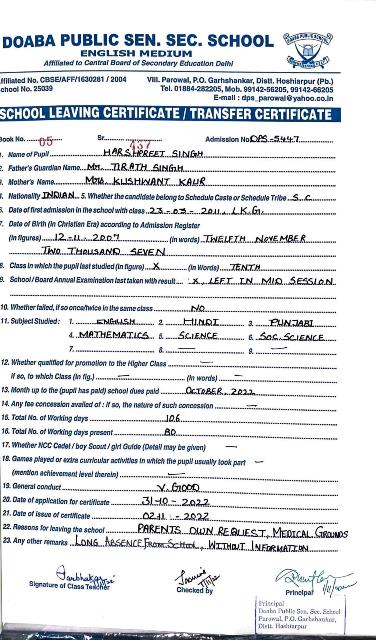 DOABA PUBLIC SEN. SEC. SCHOOL
ENGLISH MEDIUM
Affiliated to Central Board of Secondary Education Delhi
ffiliated No. CBSE/AFF/1630281 / 2004 Vill. Parowal, P.O. Garhshankar, Distt. Hoshiarpur (Pb.)
chool No. 25039 Tel. 01884-282205, Mob. 99142-56205, 99142-66205
E-mail : dps_parowal@yahoo.co.in
SCHOOL LEAVING CERTIFICATE / TRANSFER CERTIFICATE
Book No. 05 Sr. 437 Admission No DPS-5447
1. Name of Pupil HARSHPREET SINGH
2. Father's Guardian Name MR. TIRATH SINGH
3. Mother's Name MRS. KUSHWANT KAUR
4. Nationality INDIAN 5. Whether the candidate belong to Schedule Caste or Schedule Tribe S.C
6. Date of first admission in the school with class 23-03-2011, L.K.G.
7. Date of Birth (in Christian Era) according to Admission Register
(in figures) 12-11-2007 (in words) TWELFTH NOVEMBER
TWO THOUSAND SEVEN
8. Class in which the pupil last studied (in figure) X (in Words) TENTH
9. School / Board Annual Examination last taken with result X, LEFT IN MID SESSION
10. Whether failed, if so once/twice in the same class NO
11. Subject Studied : 1. ENGLISH 2. HINDI 3. PUNJABI
4. MATHEMATICS 5. SCIENCE 6. SOC. SCIENCE
7. — 8. — 9. —
12. Whether qualified for promotion to the Higher Class —
if so, to which Class (in fig.) — (in words) —
13. Month up to the (pupil has paid) school dues paid OCTOBER, 2022
14. Any fee concession availed of : if so, the nature of such concession —
15. Total No. of Working days 106
16. Total No. of Working days present 80
17. Whether NCC Cadet / boy Scout / girl Guide (Detail may be given) —
18. Games played or extra curricular activities in which the pupil usually took part —
(mention achievement level therein) —
19. General conduct V. GOOD
20. Date of application for certificate 31-10-2022
21. Date of issue of certificate 02-11-2022
22. Reasons for leaving the school PARENTS OWN REQUEST, MEDICAL GROUNDS
23. Any other remarks LONG ABSENCE FROM SCHOOL, WITHOUT INFORMATION
Signature of Class Teacher Checked by Principal
Principal
Doaba Public Sen. Sec. School
Parowal, P.O. Garhshankar,
Distt. Hoshiarpur